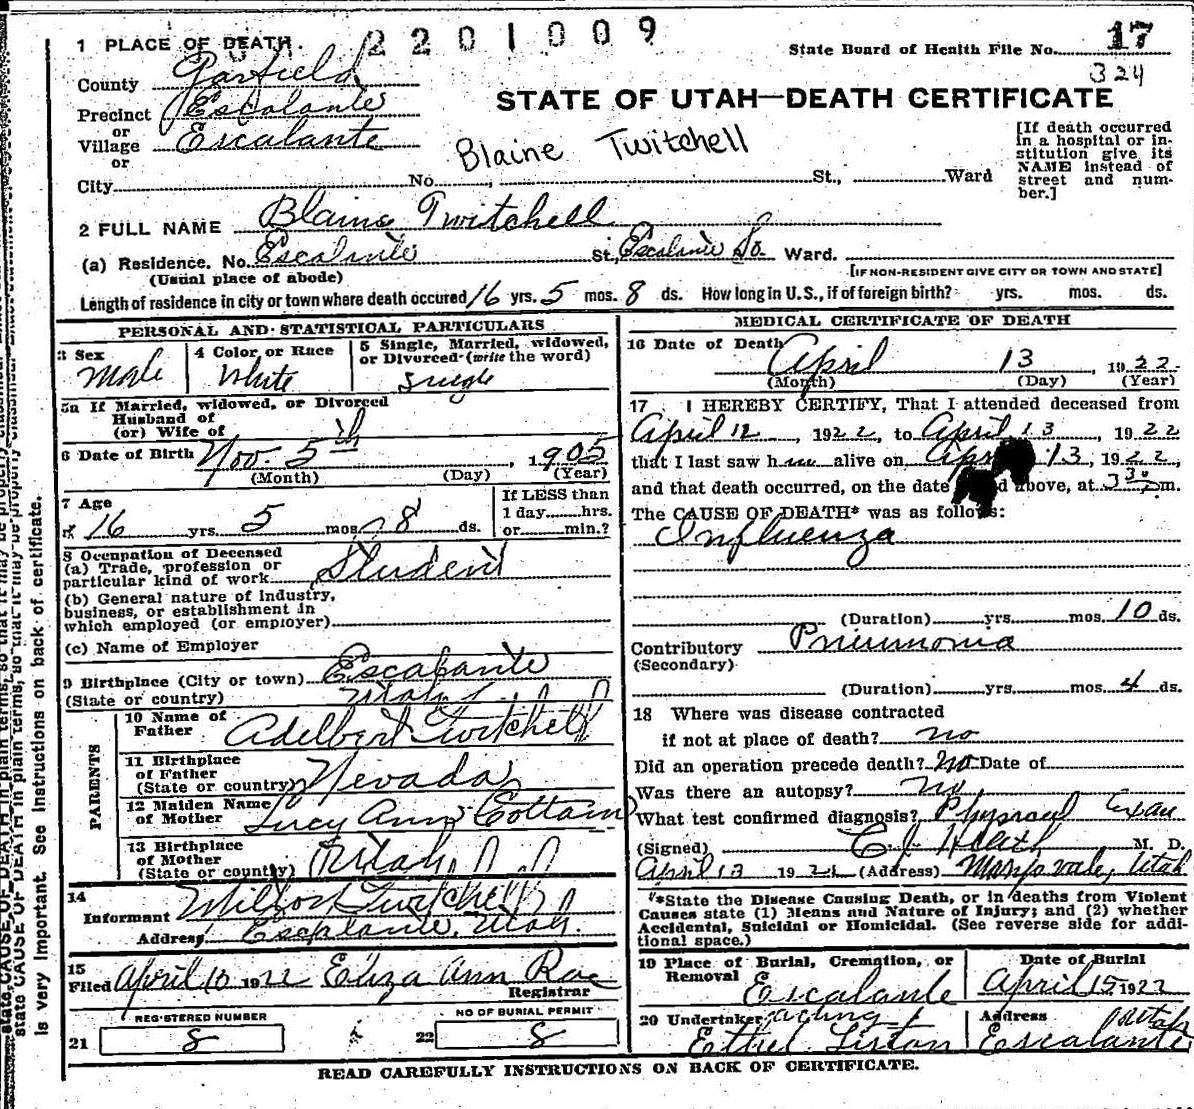 2201009
1 PLACE OF DEATH.
State Board of Health File No. 17
324
County Garfield
STATE OF UTAH—DEATH CERTIFICATE
Precinct Escalante
or
Village Escalante
or
Blaine Twitchell
City No. St., Ward
[If death occurred in a hospital or institution give its NAME instead of street and number.]
2 FULL NAME Blaine Twitchell
(a) Residence. No. Escalante St., Escalante So. Ward.
(Usual place of abode)
[IF NON-RESIDENT GIVE CITY OR TOWN AND STATE]
Length of residence in city or town where death occured 16 yrs. 5 mos. 8 ds. How long in U. S., if of foreign birth? yrs. mos. ds.
PERSONAL AND STATISTICAL PARTICULARS
3 Sex
Male
4 Color or Race
White
5 Single, Married, widowed,
or Divorced (write the word)
Single
5a If Married, widowed, or Divorced
Husband of
(or) Wife of
6 Date of Birth Nov 5th, 1905
(Month) (Day) (Year)
7 Age
16 yrs. 5 mos. 8 ds.
If LESS than
1 day hrs.
or min.?
8 Occupation of Deceased
(a) Trade, profession or
particular kind of work Student
(b) General nature of Industry,
business, or establishment in
which employed (or employer)
(c) Name of Employer
9 Birthplace (City or town) Escalante
(State or country) Utah
PARENTS
10 Name of
Father Adelbert Twitchell
11 Birthplace
of Father
(State or country) Nevada
12 Maiden Name
of Mother Lucy Ann Cottam
13 Birthplace
of Mother
(State or country) Utah
14
Informant Twitchell
Address Escalante, Utah.
15
Filed April 10 1922 Eliza Ann Rae
Registrar
REGISTERED NUMBER
21 8
NO OF BURIAL PERMIT
22 8
MEDICAL CERTIFICATE OF DEATH
16 Date of Death April 13, 1922
(Month) (Day) (Year)
17 I HEREBY CERTIFY, That I attended deceased from
April 12, 1922, to April 13, 1922
that I last saw him alive on April 13, 1922,
and that death occurred, on the date above, at 3 30 m.
The CAUSE OF DEATH* was as follows:
Influenza
(Duration) yrs. mos. 10 ds.
Contributory Pneumonia
(Secondary)
(Duration) yrs. mos. 4 ds.
18 Where was disease contracted
if not at place of death? no
Did an operation precede death? no Date of
Was there an autopsy? no
What test confirmed diagnosis? Physical Exam
(Signed) M. D.
April 13 1922 (Address) Marysvale, Utah
*State the Disease Causing Death, or in deaths from Violent
Causes state (1) Means and Nature of Injury; and (2) whether
Accidental, Suicidal or Homicidal. (See reverse side for addi-
tional space.)
19 Place of Burial, Cremation, or
Removal
Escalante
Date of Burial
April 15 1922
20 Undertaker acting
Ethel Liston
Address
Escalante Utah
READ CAREFULLY INSTRUCTIONS ON BACK OF CERTIFICATE.
state CAUSE OF DEATH in plain terms, so that it may be
is very important. See instructions on back of certificate.